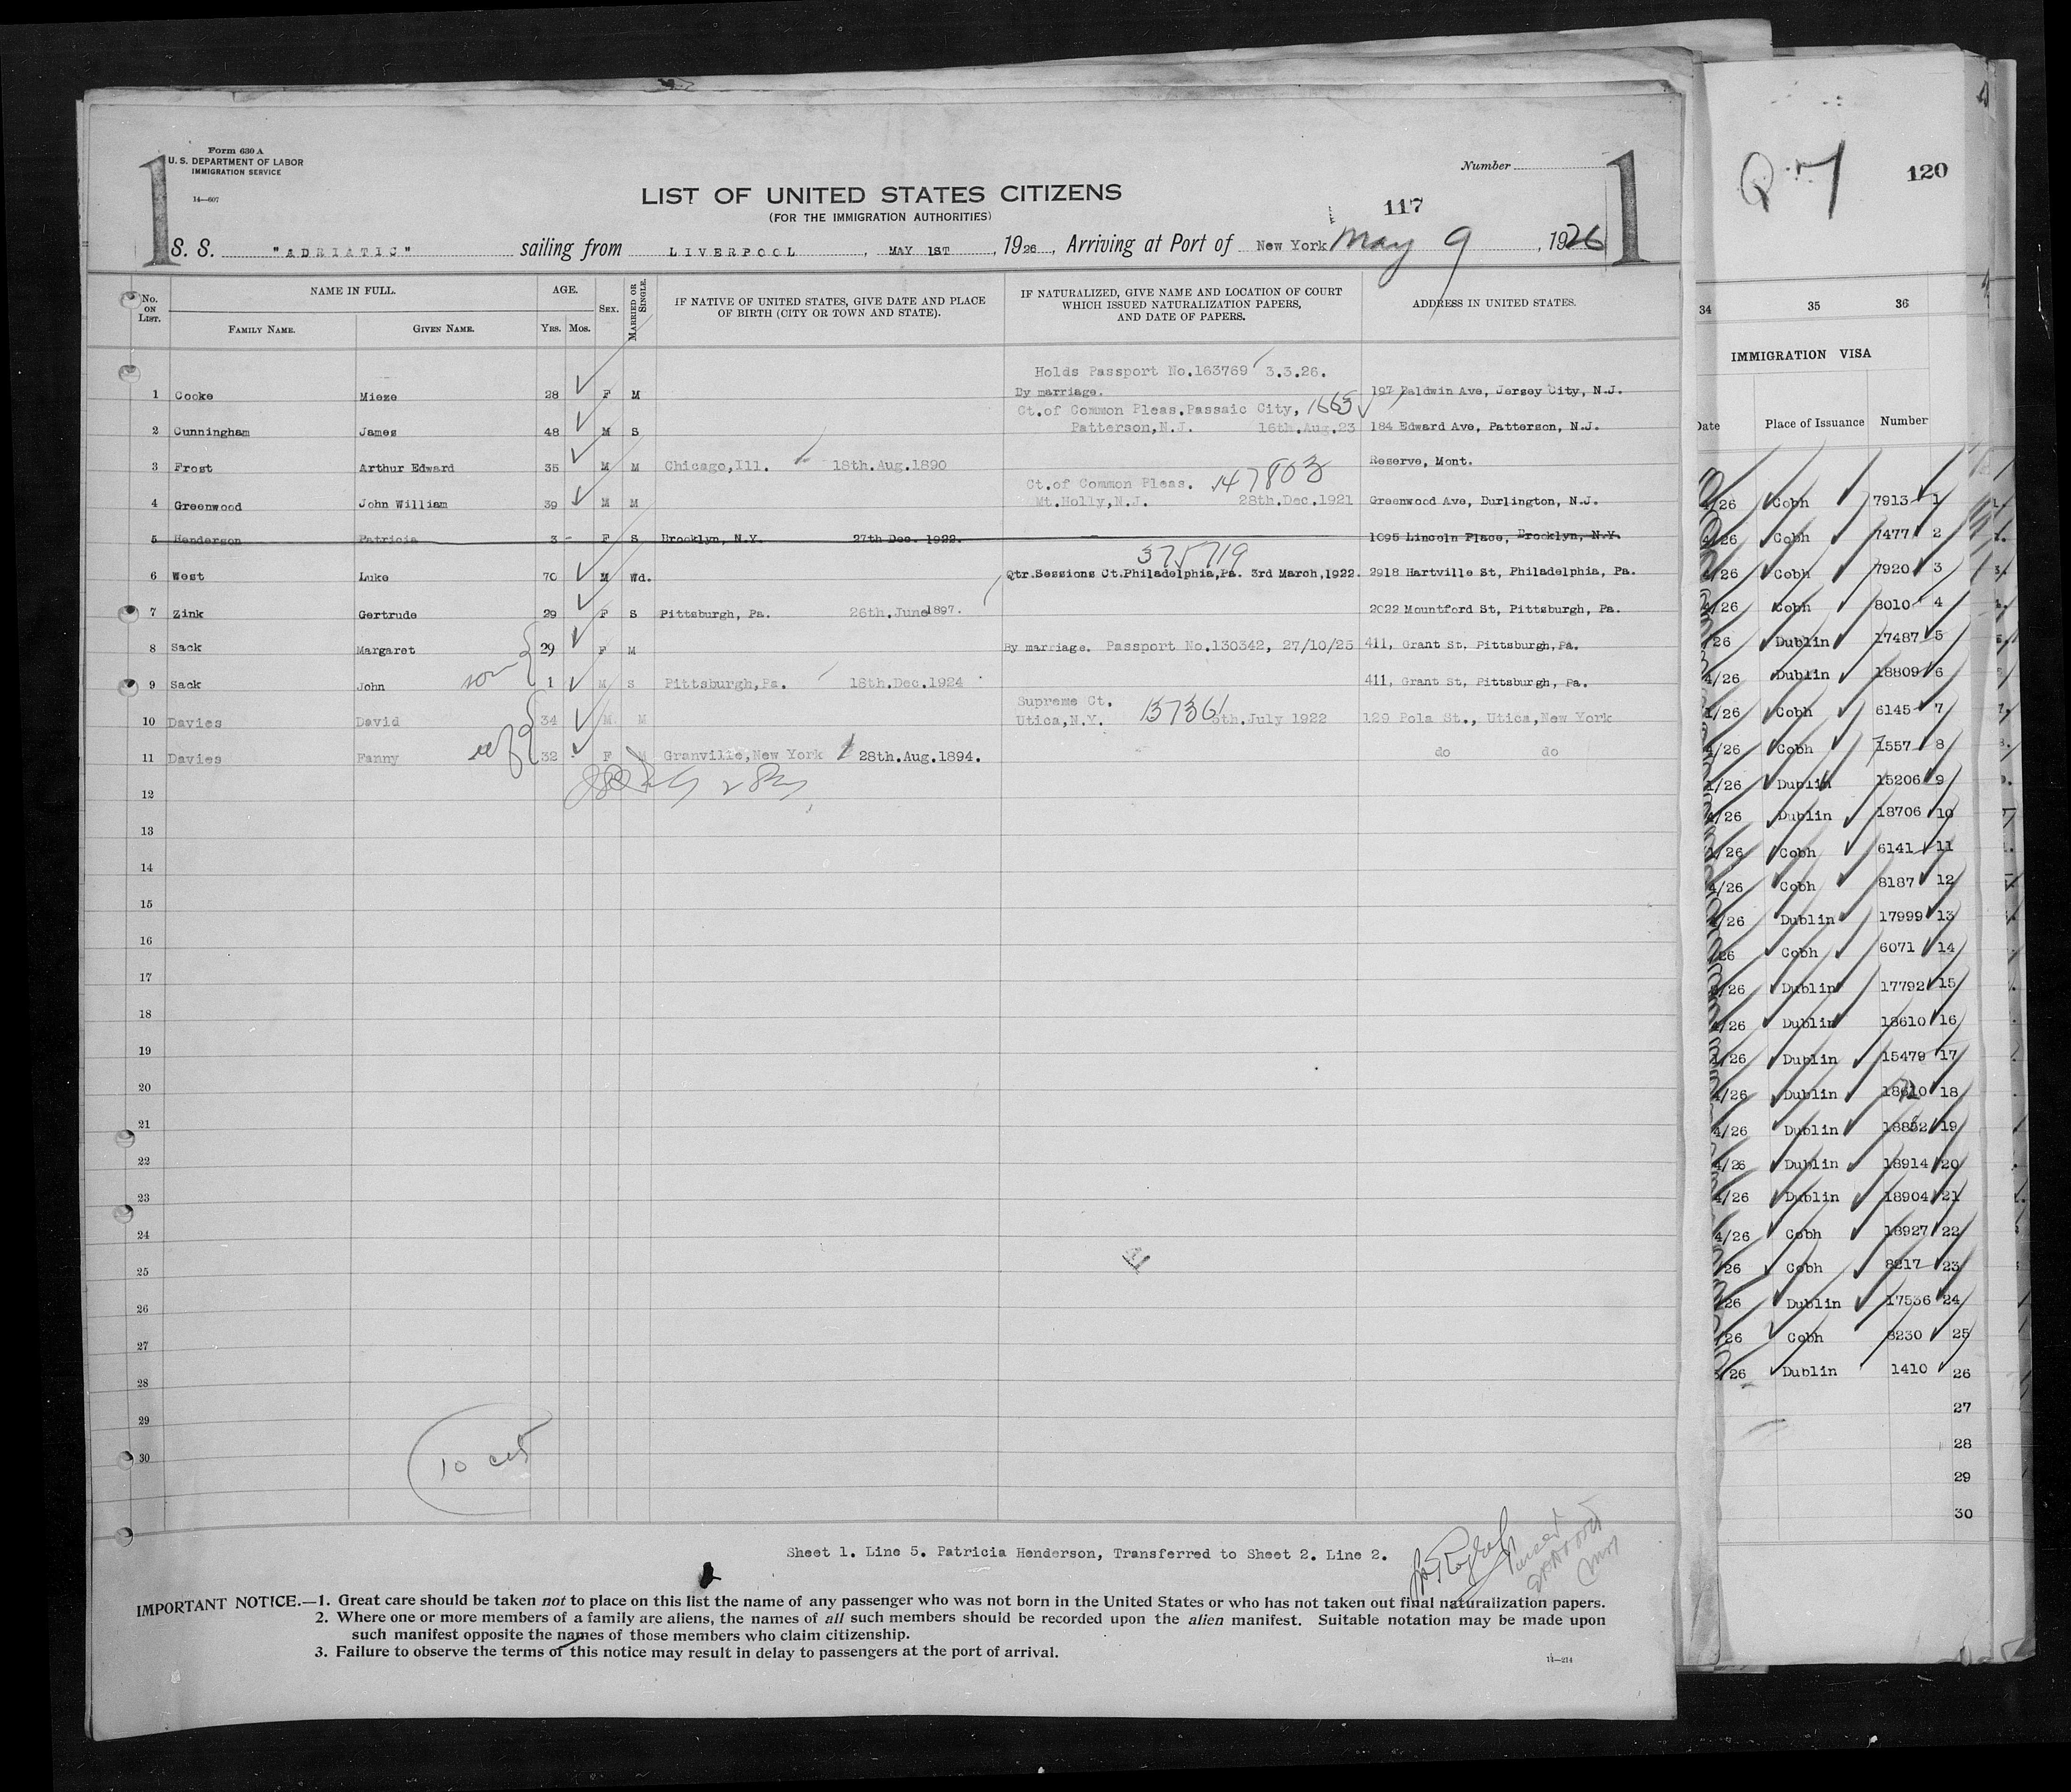 Form 630 A
U. S. DEPARTMENT OF LABOR
IMMIGRATION SERVICE
14—607
1
Number
1
LIST OF UNITED STATES CITIZENS
(FOR THE IMMIGRATION AUTHORITIES)
117
S. S. "ADRIATIC" sailing from LIVERPOOL, MAY 1ST, 1926, Arriving at Port of New York May 9, 1926
No. ON LIST. NAME IN FULL. AGE. SEX. MARRIED OR SINGLE. IF NATIVE OF UNITED STATES, GIVE DATE AND PLACE OF BIRTH (CITY OR TOWN AND STATE). IF NATURALIZED, GIVE NAME AND LOCATION OF COURT WHICH ISSUED NATURALIZATION PAPERS, AND DATE OF PAPERS. ADDRESS IN UNITED STATES.
FAMILY NAME. GIVEN NAME. YRS. MOS.
Holds Passport No.163769 3.3.26.
1 Cooke Mieze 28 F M By marriage. 197 Baldwin Ave, Jersey City, N.J.
Ct.of Common Pleas.Passaic City, 1663
2 Cunningham James 48 M S Patterson,N.J. 16th.Aug.23 184 Edward Ave, Patterson, N.J.
3 Frost Arthur Edward 35 M M Chicago,Ill. 18th.Aug.1890 Reserve, Mont.
Ct.of Common Pleas. 147803
4 Greenwood John William 39 M M Mt.Holly,N.J. 28th.Dec.1921 Greenwood Ave, Burlington, N.J.
5 Henderson Patricia 3 - F S Brooklyn, N.Y. 27th Dec. 1922. 1095 Lincoln Place, Brooklyn, N.Y.
375719
6 West Luke 70 M Wd. Qtr.Sessions Ct.Philadelphia,Pa. 3rd March,1922. 2918 Hartville St, Philadelphia, Pa.
7 Zink Gertrude 29 F S Pittsburgh, Pa. 26th.June 1897. 2022 Mountford St, Pittsburgh, Pa.
8 Sack Margaret 29 F M By marriage. Passport No.130342, 27/10/25 411, Grant St, Pittsburgh,Pa.
9 Sack John son 1 M S Pittsburgh,Pa. 18th.Dec.1924 411, Grant St, Pittsburgh, Pa.
Supreme Ct.
10 Davies David 34 M M Utica,N.Y. 13736 6th.July 1922 129 Pola St., Utica,New York
11 Davies Fanny wf 32 F M Granville,New York 28th.Aug.1894. do do
12
13
14
15
16
17
18
19
20
21
22
23
24
25
26
27
28
29
30
10 cit
Sheet 1. Line 5. Patricia Henderson, Transferred to Sheet 2. Line 2.
IMPORTANT NOTICE.—1. Great care should be taken not to place on this list the name of any passenger who was not born in the United States or who has not taken out final naturalization papers.
2. Where one or more members of a family are aliens, the names of all such members should be recorded upon the alien manifest. Suitable notation may be made upon
such manifest opposite the names of those members who claim citizenship.
3. Failure to observe the terms of this notice may result in delay to passengers at the port of arrival.
14—214
120
34 35 36
IMMIGRATION VISA
Date Place of Issuance Number
4/26 Cobh 7913 1
4/26 Cobh 7477 2
4/26 Cobh 7920 3
4/26 Cobh 8010 4
26 Dublin 17487 5
4/26 Dublin 18809 6
1/26 Cobh 6145 7
4/26 Cobh 7557 8
1/26 Dublin 15206 9
26 Dublin 18706 10
1/26 Cobh 6141 11
4/26 Cobh 8187 12
26 Dublin 17999 13
26 Cobh 6071 14
26 Dublin 17792 15
4/26 Dublin 18610 16
26 Dublin 15479 17
4/26 Dublin 18 18
4/26 Dublin 18852 19
4/26 Dublin 18914 20
4/26 Dublin 18904 21
4/26 Cobh 18927 22
26 Cobh 8217 23
26 Dublin 17536 24
26 Cobh 8230 25
26 Dublin 1410 26
27
28
29
30